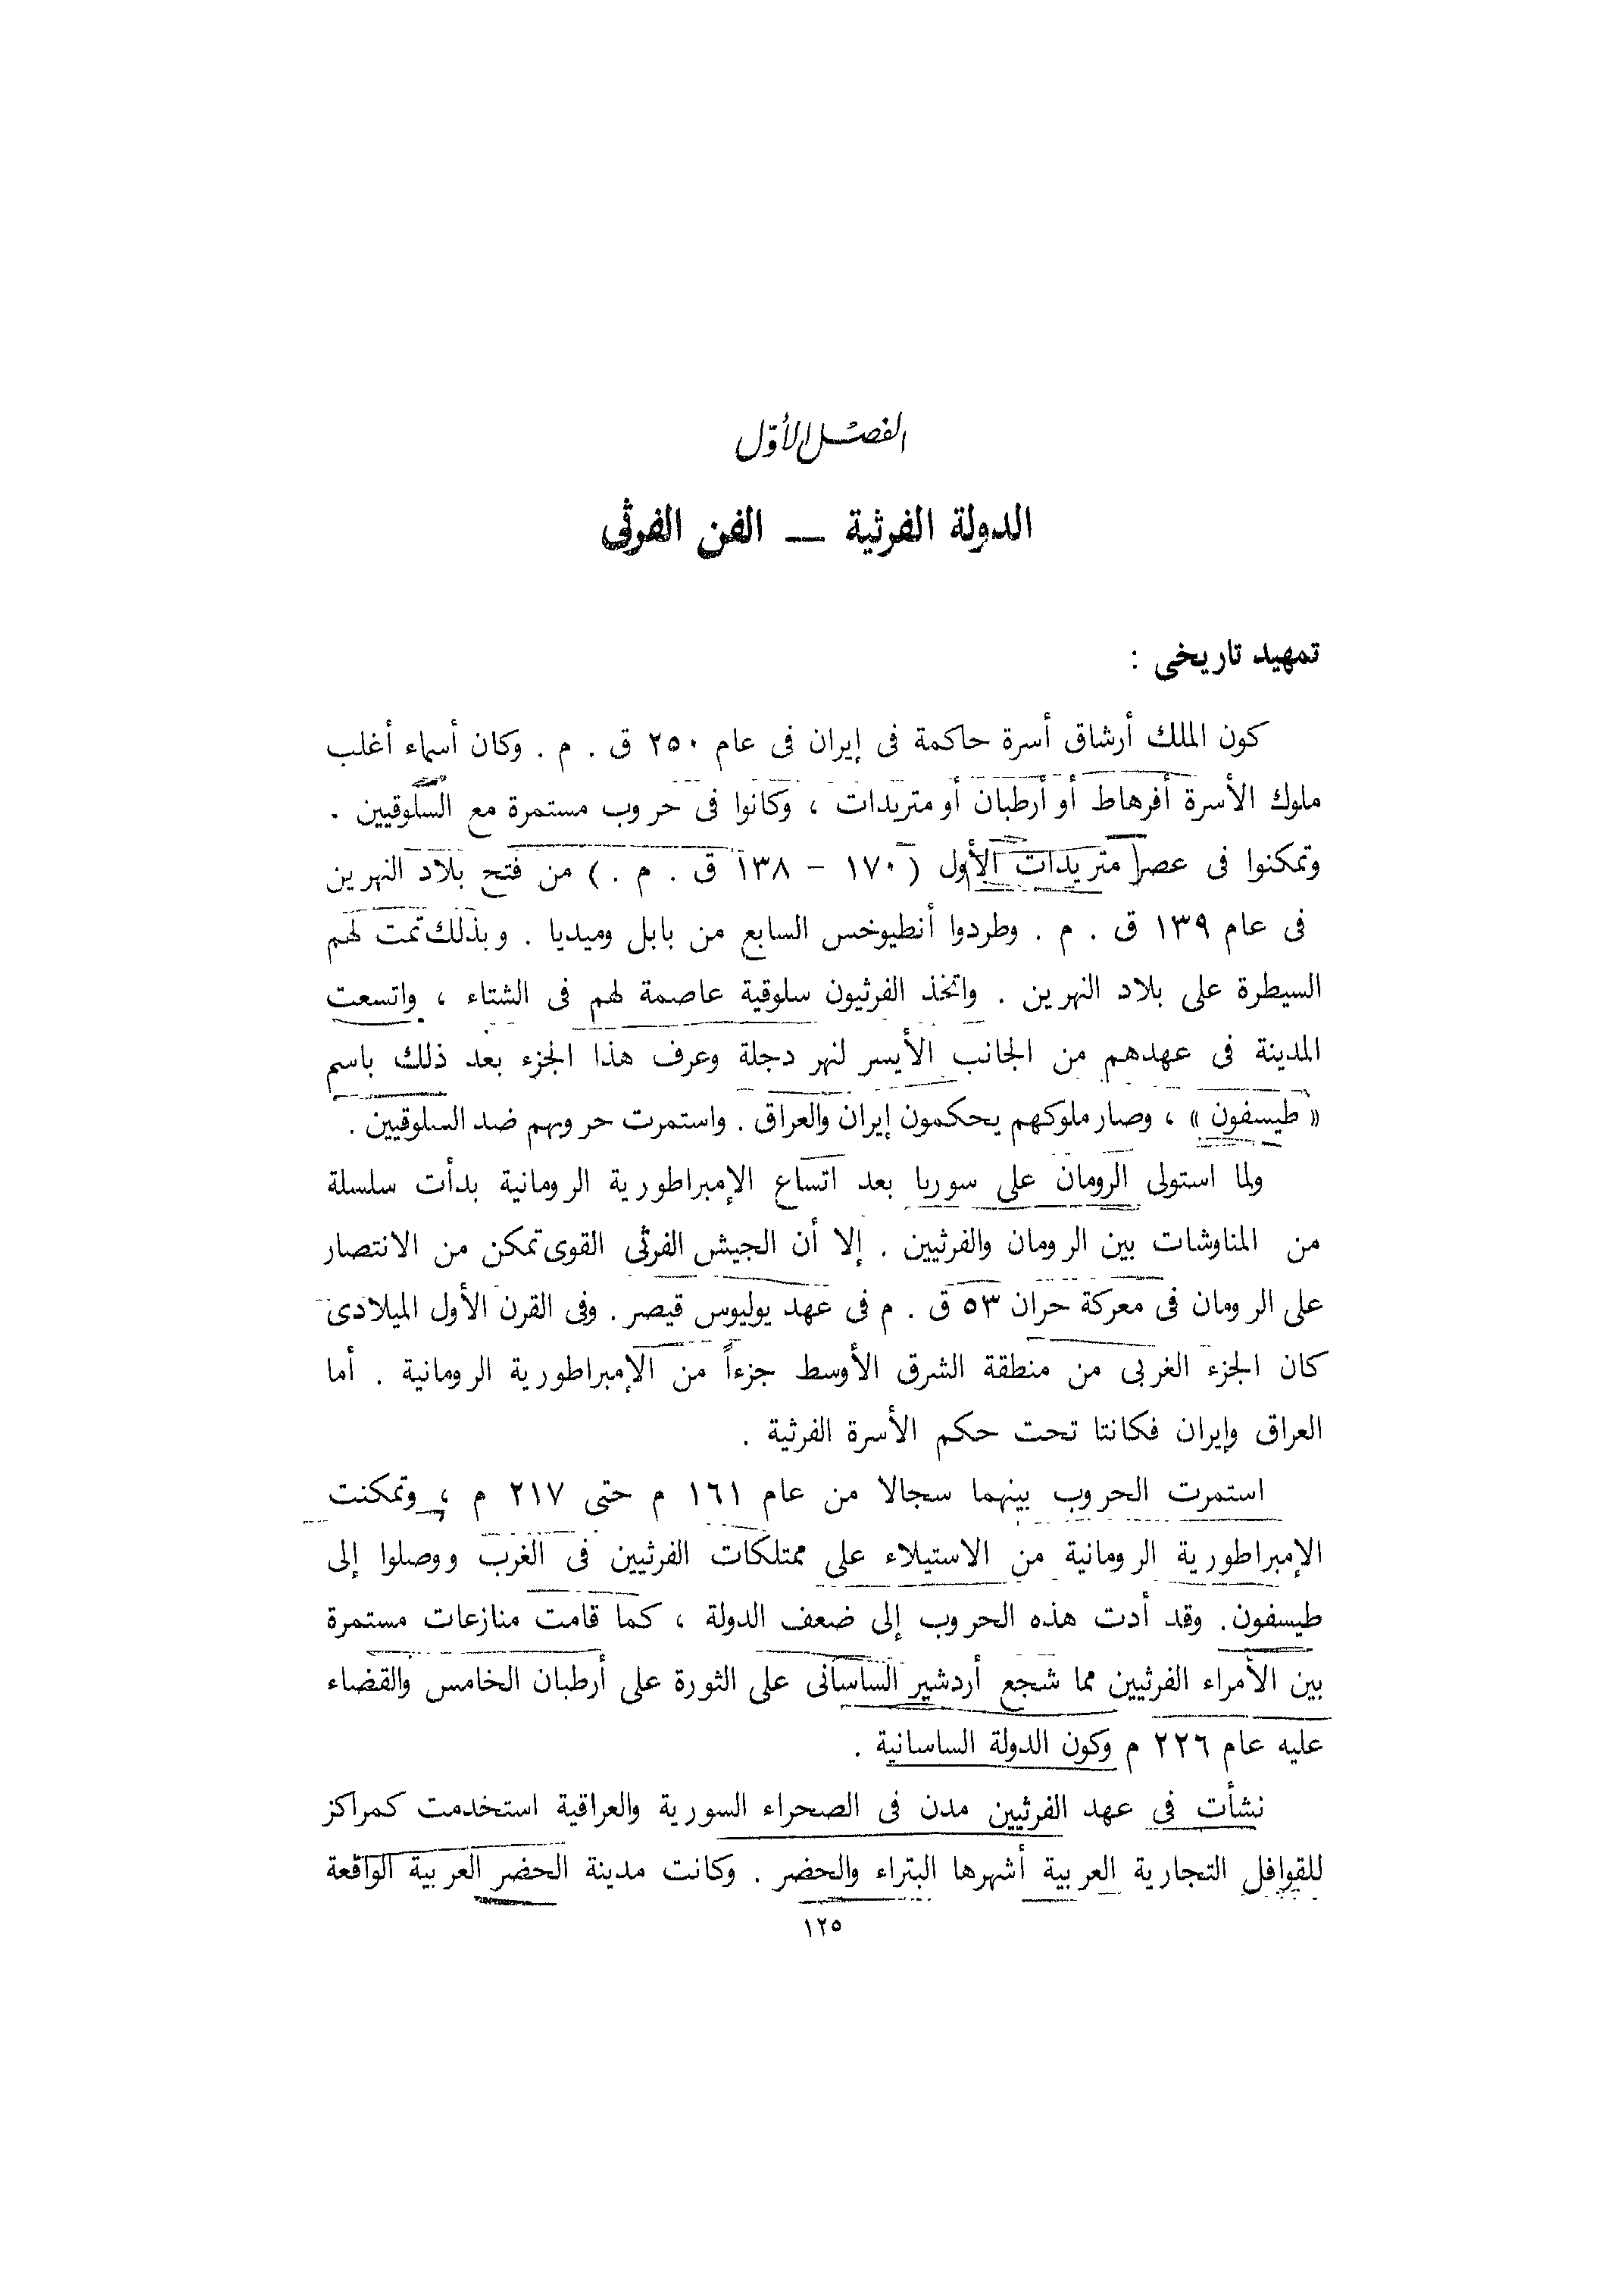 الفصل الأوّل
الدولة الفرثية — الفن الفرثى
تمهيد تاريخى :
كون الملك أرشاق أسرة حاكمة فى إيران فى عام ٢٥٠ ق . م . وكان أسماء أغلب
ملوك الأسرة أفرهاط أو أرطبان أو متريدات ، وكانوا فى حروب مستمرة مع السلوقيين .
وتمكنوا فى عصر متريدات الأول ( ١٧٠ – ١٣٨ ق . م . ) من فتح بلاد النهرين
فى عام ١٣٩ ق . م . وطردوا أنطيوخس السابع من بابل وميديا . وبذلك تمت لهم
السيطرة على بلاد النهرين . واتخذ الفرثيون سلوقية عاصمة لهم فى الشتاء ، واتسعت
المدينة فى عهدهم من الجانب الأيسر لنهر دجلة وعرف هذا الجزء بعد ذلك باسم
« طيسفون » ، وصار ملوكهم يحكمون إيران والعراق . واستمرت حروبهم ضد السلوقيين .
ولما استولى الرومان على سوريا بعد اتساع الإمبراطورية الرومانية بدأت سلسلة
من المناوشات بين الرومان والفرثيين . إلا أن الجيش الفرثى القوى تمكن من الانتصار
على الرومان فى معركة حران ٥٣ ق . م فى عهد يوليوس قيصر . وفى القرن الأول الميلادى
كان الجزء الغربى من منطقة الشرق الأوسط جزءاً من الإمبراطورية الرومانية . أما
العراق وإيران فكانتا تحت حكم الأسرة الفرثية .
استمرت الحروب بينهما سجالا من عام ١٦١ م حتى ٢١٧ م ، وتمكنت
الإمبراطورية الرومانية من الاستيلاء على ممتلكات الفرثيين فى الغرب ووصلوا إلى
طيسفون . وقد أدت هذه الحروب إلى ضعف الدولة ، كما قامت منازعات مستمرة
بين الأمراء الفرثيين مما شجع أردشير الساسانى على الثورة على أرطبان الخامس والقضاء
عليه عام ٢٢٦ م وكون الدولة الساسانية .
نشأت فى عهد الفرثيين مدن فى الصحراء السورية والعراقية استخدمت كمراكز
للقوافل التجارية العربية أشهرها البتراء والحضر . وكانت مدينة الحضر العربية الواقعة
١٢٥